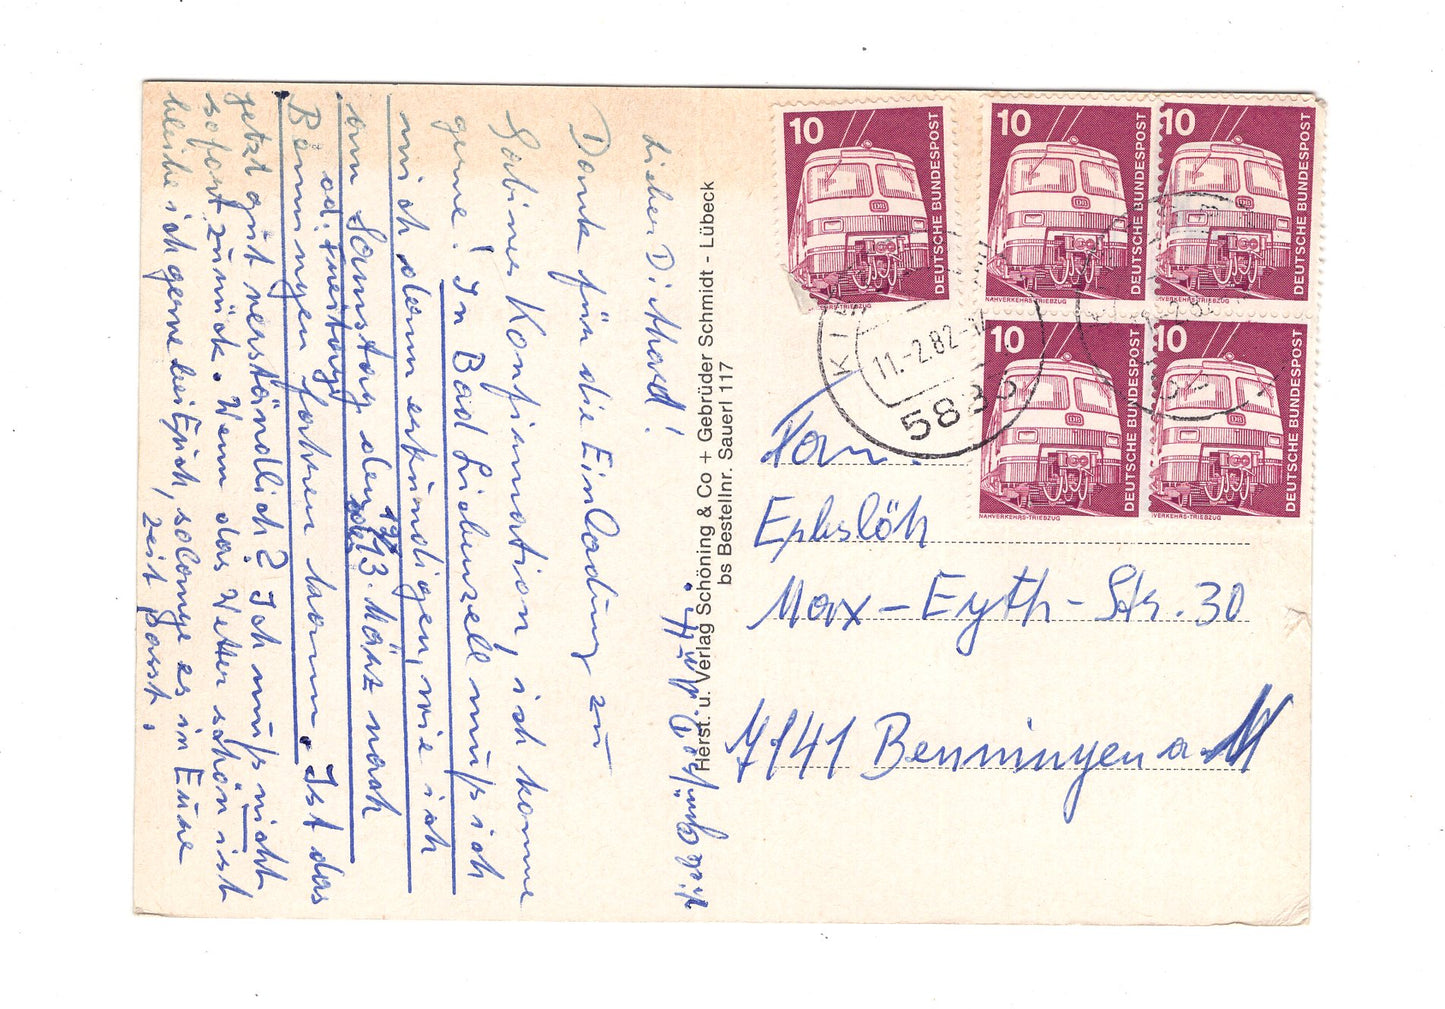 Lieber Dithard!
Danke für die Einladung zu
Sabines Konfirmation, ich komme
gerne! In Bad Liebenzell muß ich
mich dann erkundigen, wie ich
am Samstag, den 13. März nach
od. Freitag 12.
Benningen fahren kann. Ist das
jetzt gut verständlich? Ich muß nicht
sofort zurück. Wenn das Wetter schön ist
bleibe ich gerne bei Euch, solange es in Eure
Zeit passt.
Viele Grüße! Ruth.
Herst. u. Verlag Schöning & Co + Gebrüder Schmidt - Lübeck
bs Bestellnr. Sauerl 117
10
DEUTSCHE BUNDESPOST
10
DEUTSCHE BUNDESPOST
NAHVERKEHRS-TRIEBZUG
10
DEUTSCHE BUNDESPOST
10
DEUTSCHE BUNDESPOST
NAHVERKEHRS-TRIEBZUG
10
DEUTSCHE BUNDESPOST
11.-2.82
Fam.
Ephslöh
Max-Eyth-Str. 30
7141 Benningen a. M